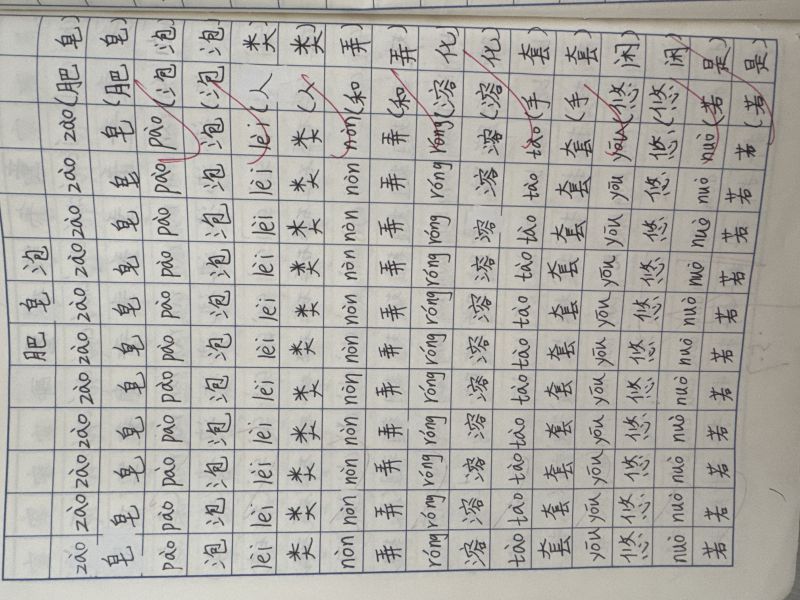 肥皂泡
zào zào zào zào zào zào zào zào zào zào zào(肥皂)
皂皂皂皂皂皂皂皂皂皂皂(肥皂)
pào pào pào pào pào pào pào pào pào pào pào(泡泡)
泡泡泡泡泡泡泡泡泡泡泡(泡泡)
lèi lèi lèi lèi lèi lèi lèi lèi lèi lèi lèi(人类)
类类类类类类类类类类类(人类)
nòn nòn nòn nòn nòn nòn nòn nòn nòn nòn nòn(和弄)
弄弄弄弄弄弄弄弄弄弄弄(和弄)
róng róng róng róng róng róng róng róng róng róng róng(溶化)
溶溶溶溶溶溶溶溶溶溶溶(溶化)
tào tào tào tào tào tào tào tào tào tào tào(手套)
套套套套套套套套套套套(手套)
yōu yōu yōu yōu yōu yōu yōu yōu yōu yōu yōu(悠闲)
悠悠悠悠悠悠悠悠悠悠悠(悠闲)
nuò nuò nuò nuò nuò nuò nuò nuò nuò nuò nuò(若是)
若若若若若若若若若若若(若是)